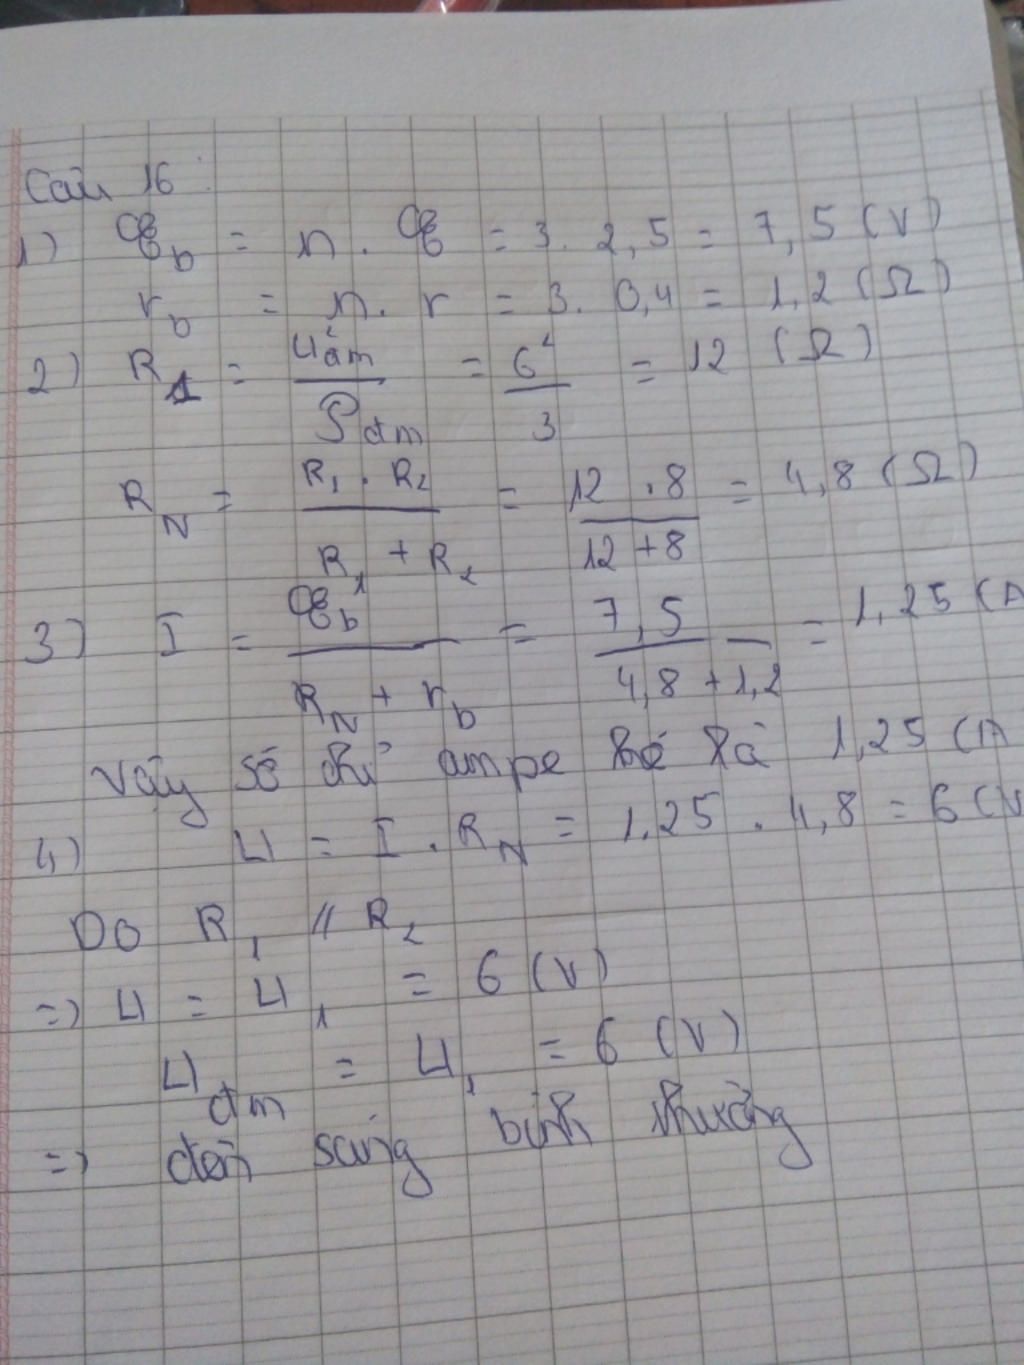 Câu 16:
1) ℰb = n. ℰ = 3. 2,5 = 7,5 (V)
rb = n. r = 3. 0,4 = 1,2 (Ω)
2) R1 = Uđm² / Pđm = 6² / 3 = 12 (Ω)
RN = R1 . R2 / R1 + R2 = 12 . 8 / 12 + 8 = 4,8 (Ω)
3) I = ℰb / RN + rb = 7,5 / 4,8 + 1,2 = 1,25 (A
Vậy số chỉ ampe kế là 1,25 (A
4) U = I . RN = 1.25 . 4,8 = 6 (V
Do R1 // R2
=> U = U1 = 6 (V)
Uđm = U1 = 6 (V)
=> đèn sáng bình thường